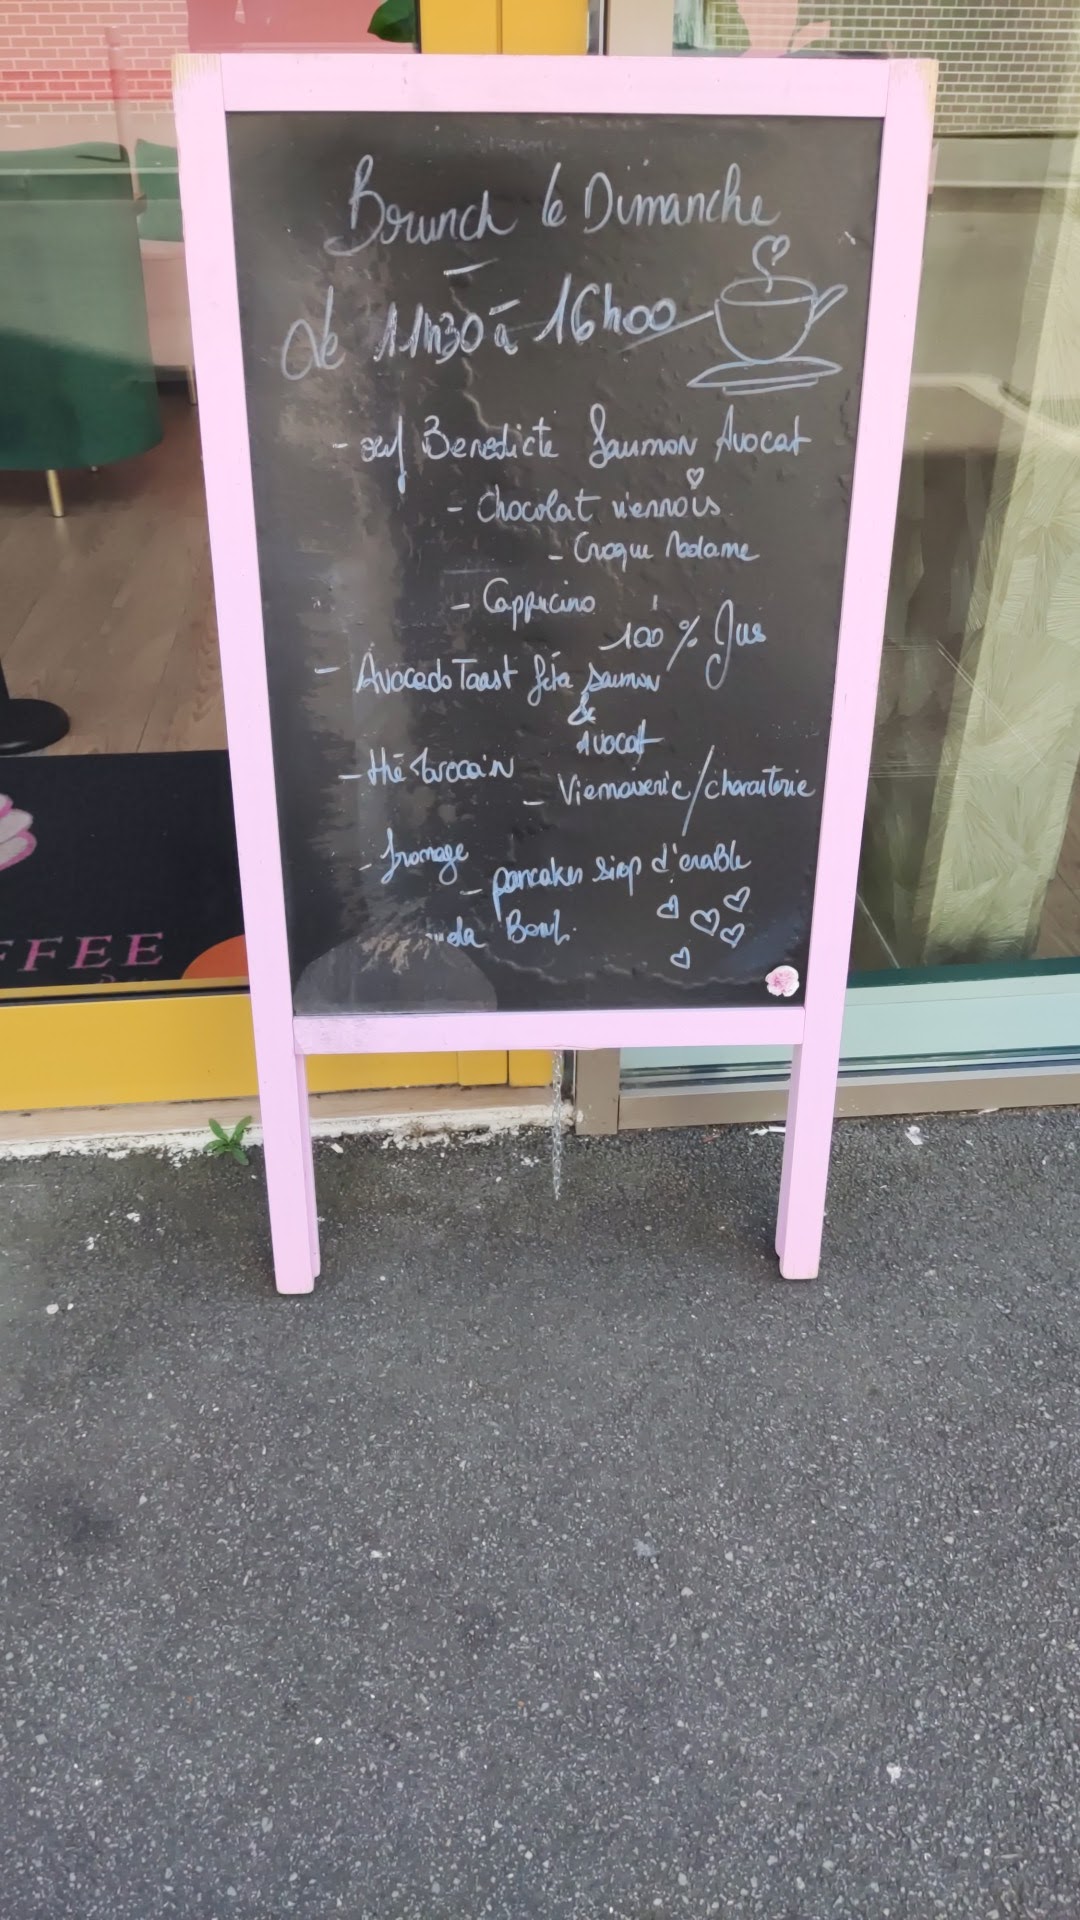 Brunch le Dimanche
de 11h30 à 16h00
- œuf Benedicte Saumon Avocat
- Chocolat viennois
- Croque Madame
- Cappucino
100 % Jus
- Avocado Toast féta saumon
&
Avocat
- thé Marocain
- Viennoiserie/charcuterie
- fromage
- pancakes sirop d'erable
Bowl.
FFEE